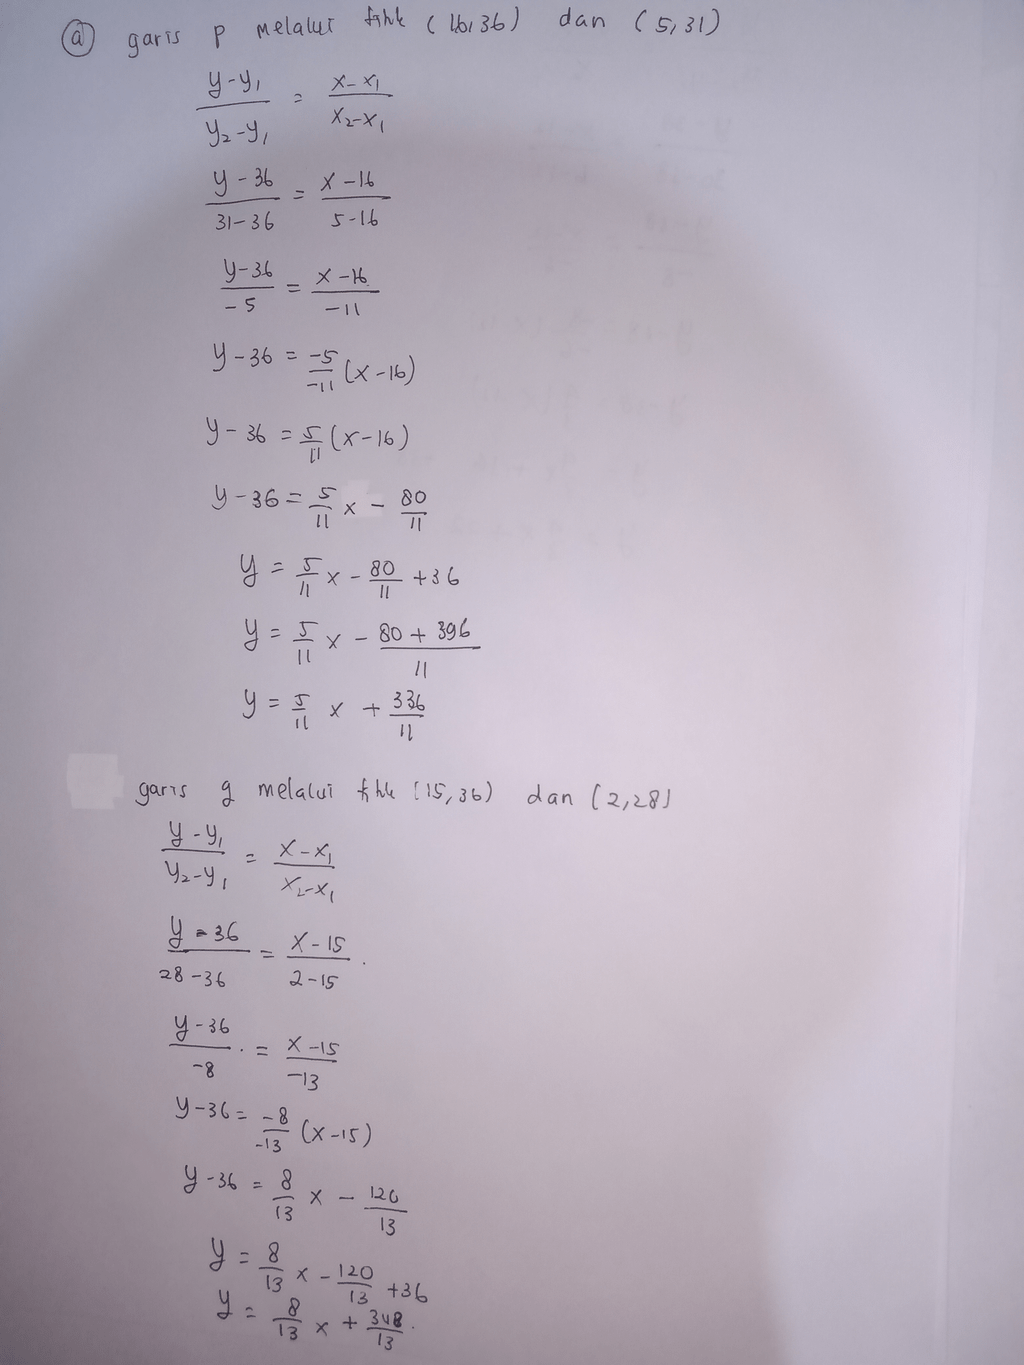 (a) garis p melalui titik (16,36) dan (5,31)
(y-y₁)/(y₂-y₁) = (x-x₁)/(x₂-x₁)
(y-36)/(31-36) = (x-16)/(5-16)
(y-36)/(-5) = (x-16)/(-11)
y-36 = -5/-11 (x-16)
y-36 = 5/11 (x-16)
y-36 = 5/11 x - 80/11
y = 5/11 x - 80/11 + 36
y = 5/11 x - (80 + 396)/11
y = 5/11 x + 336/11
garis q melalui titik (15,36) dan (2,28)
(y-y₁)/(y₂-y₁) = (x-x₁)/(x₂-x₁)
(y-36)/(28-36) = (x-15)/(2-15)
(y-36)/(-8) = (x-15)/(-13)
y-36 = -8/-13 (x-15)
y-36 = 8/13 x - 120/13
y = 8/13 x - 120/13 + 36
y = 8/13 x + 348/13